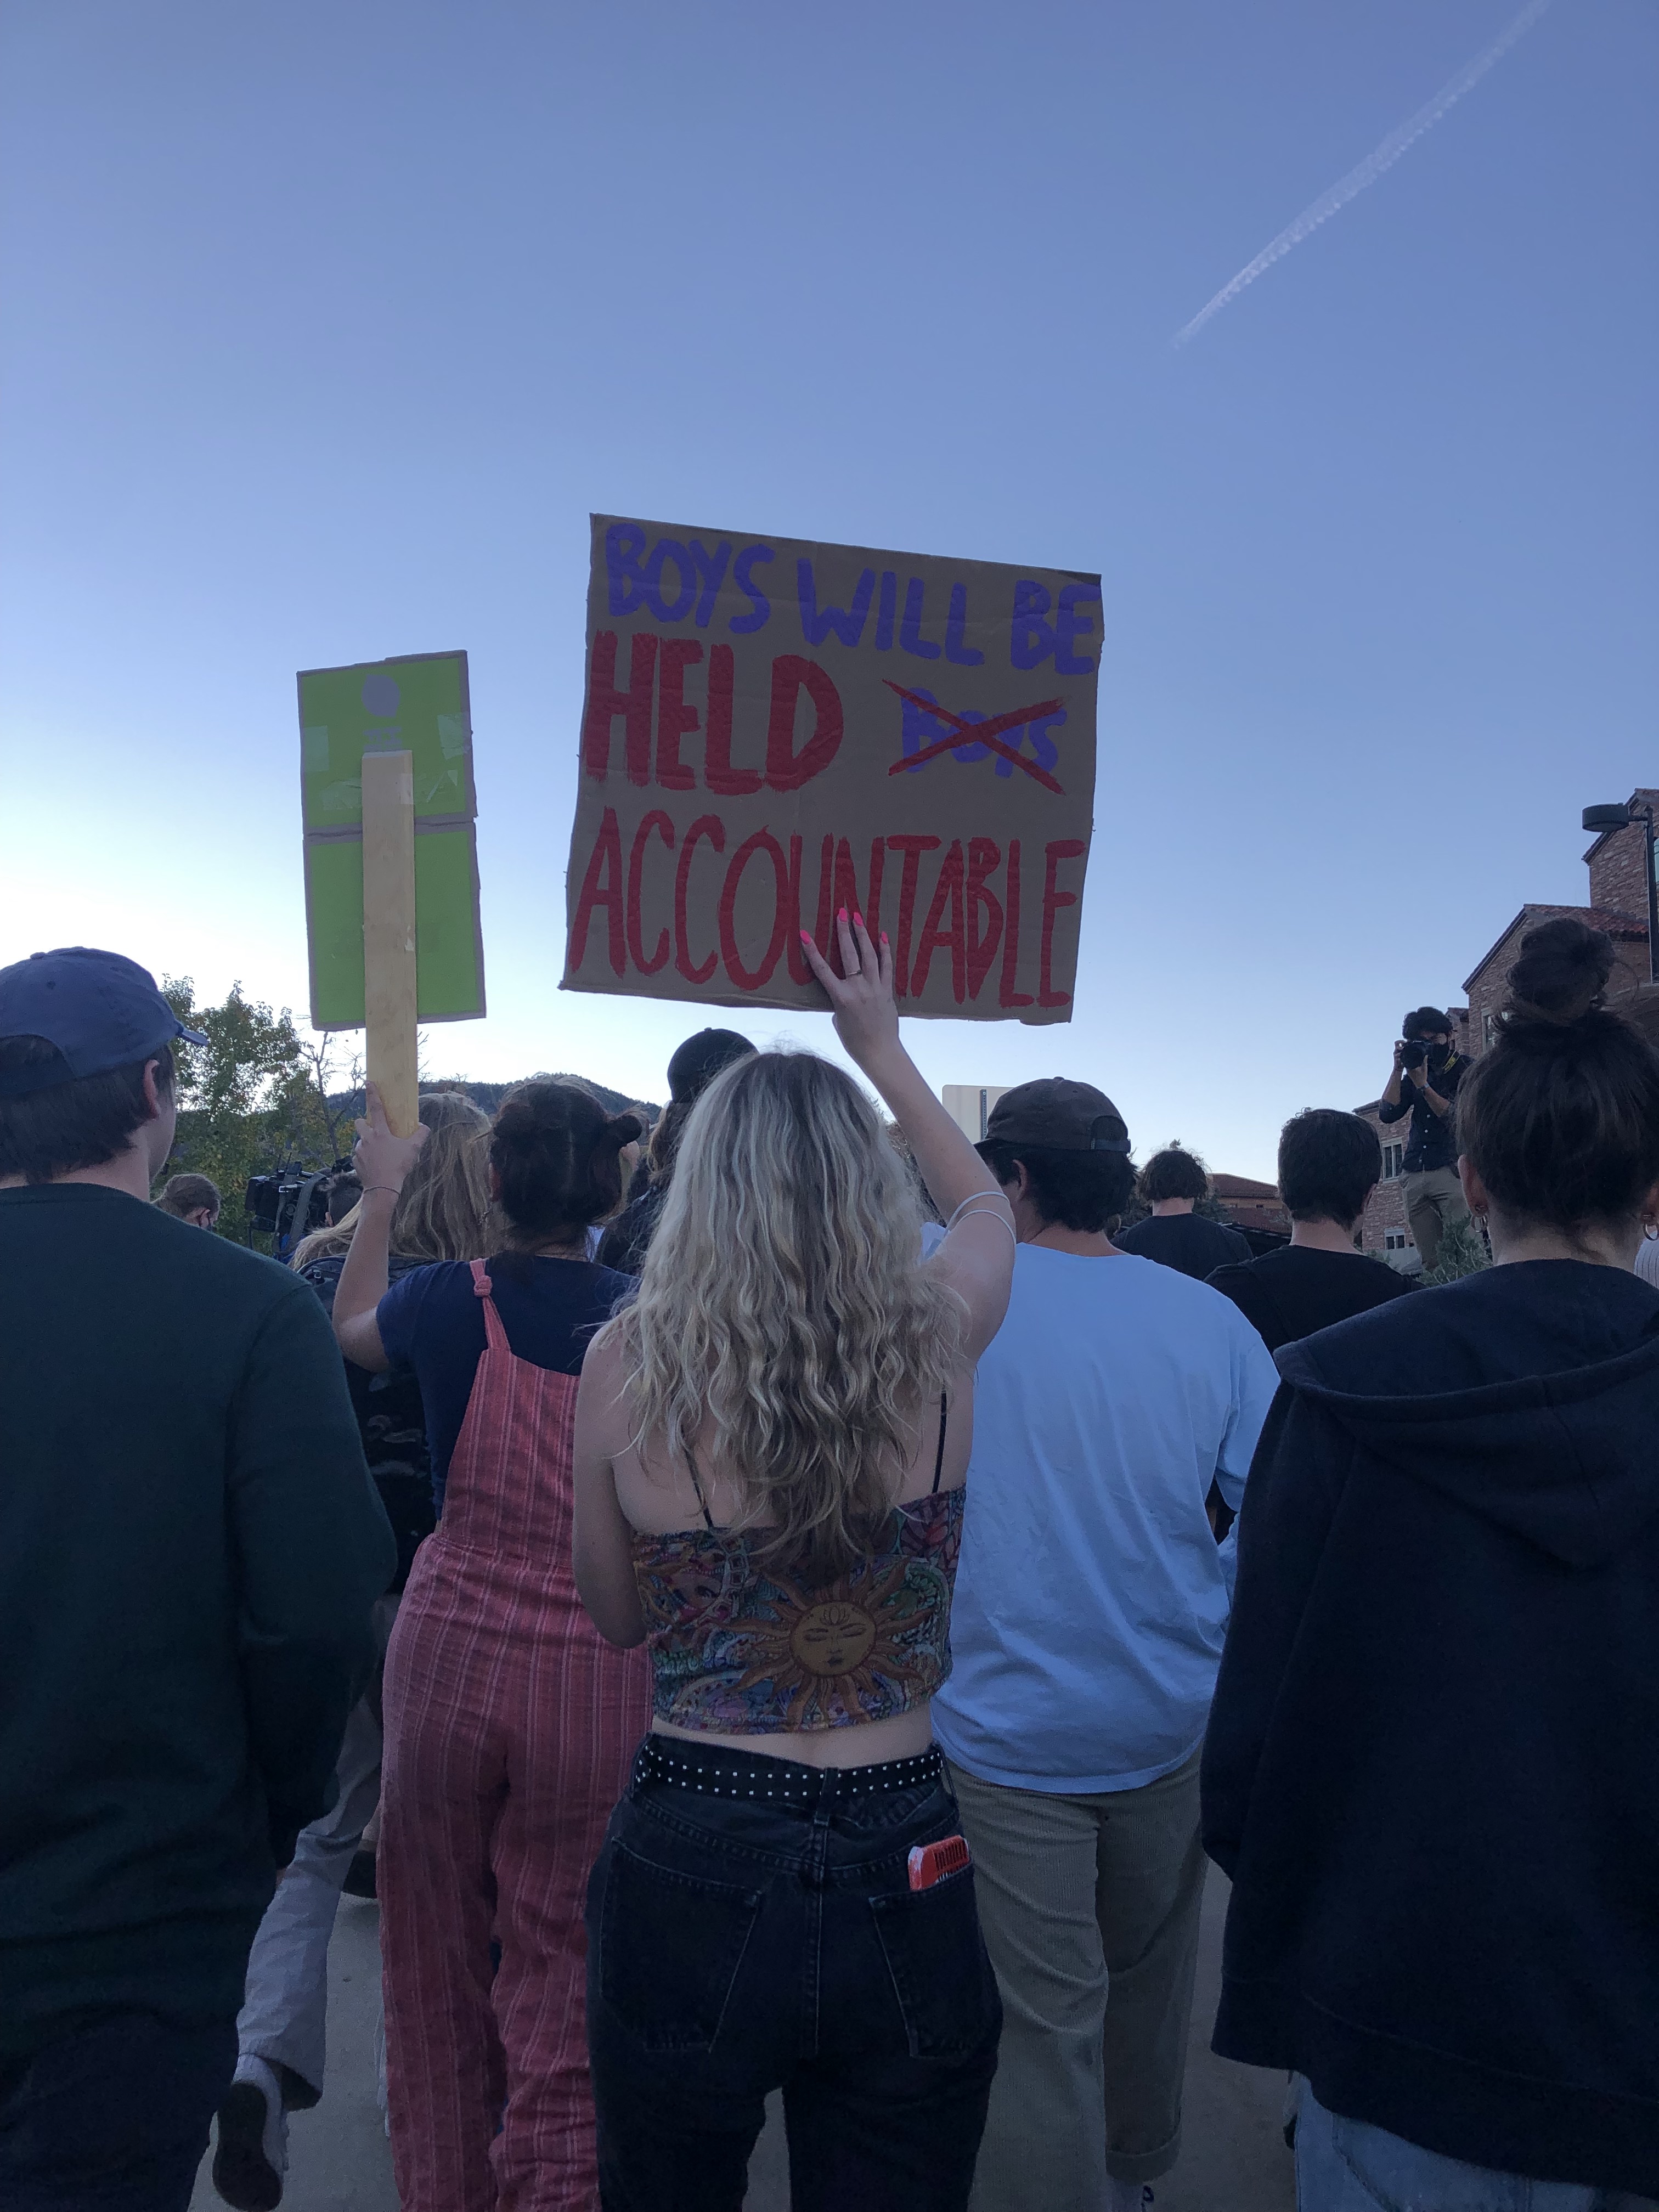 BOYS WILL BE
HELD BOYS
ACCOUNTABLE